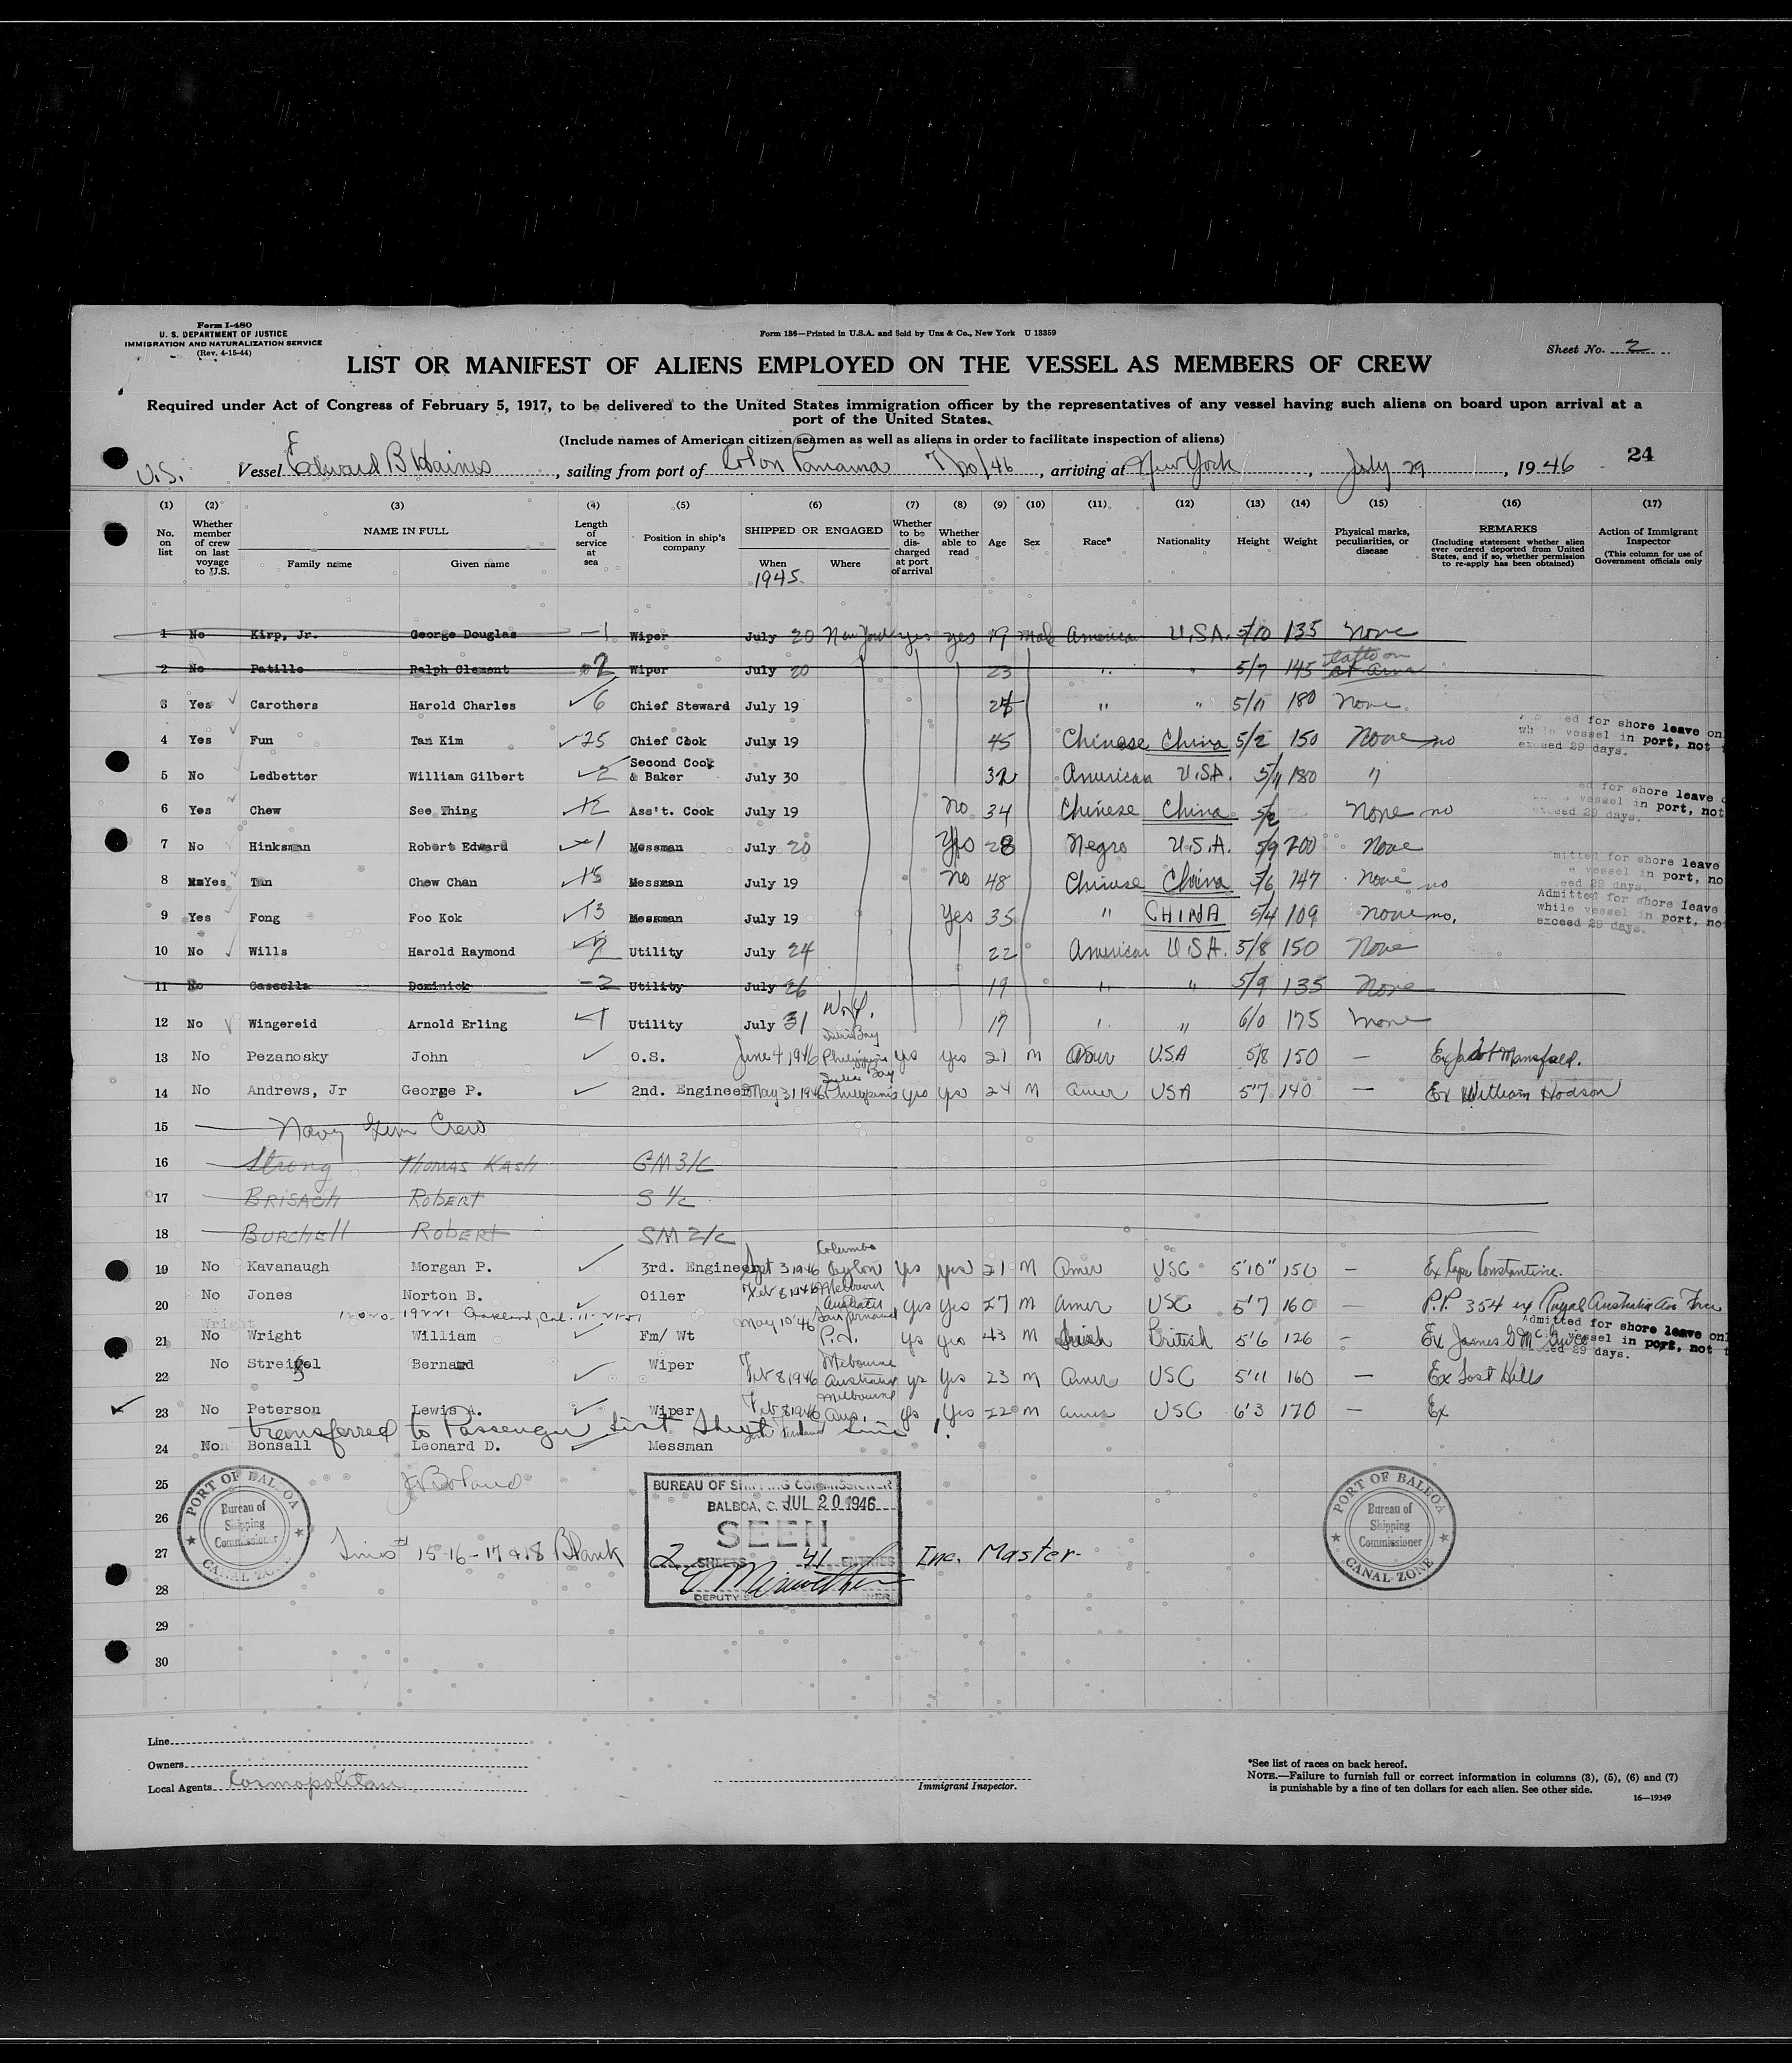 Form I-480
U. S. DEPARTMENT OF JUSTICE
IMMIGRATION AND NATURALIZATION SERVICE
(Rev. 4-15-44)
Form 136—Printed in U.S.A. and Sold by Unz & Co., New York U 13359
Sheet No. 2
LIST OR MANIFEST OF ALIENS EMPLOYED ON THE VESSEL AS MEMBERS OF CREW
Required under Act of Congress of February 5, 1917, to be delivered to the United States immigration officer by the representatives of any vessel having such aliens on board upon arrival at a
port of the United States.
(Include names of American citizen seamen as well as aliens in order to facilitate inspection of aliens)
24
U.S. Vessel Edward B Haines, sailing from port of Colon Panama 7/20/46, arriving at New York, July 29, 1946
(1) No. on list
(2) Whether member of crew on last voyage to U.S.
(3) NAME IN FULL Family name Given name
(4) Length of service at sea
(5) Position in ship's company
(6) SHIPPED OR ENGAGED When Where
1945
(7) Whether to be discharged at port of arrival
(8) Whether able to read
(9) Age
(10) Sex
(11) Race*
(12) Nationality
(13) Height
(14) Weight
(15) Physical marks, peculiarities, or disease
(16) REMARKS (Including statement whether alien ever ordered deported from United States, and if so, whether permission to re-apply has been obtained)
(17) Action of Immigrant Inspector (This column for use of Government officials only
1 No Kirp, Jr. George Douglas 1 Wiper July 20 New York yes yes 19 male American U.S.A. 5/10 135 None
2 No Patillo Ralph Clement 2 Wiper July 20 23 " " 5/7 145 tatto on
3 Yes Carothers Harold Charles 6 Chief Steward July 19 " " 5/11 180 None.
4 Yes Fun Tan Kim 25 Chief Cook July 19 45 Chinese China 5/2 150 None no
ed for shore leave onl
vessel in port, not
exceed 29 days.
5 No Ledbetter William Gilbert 2 Second Cook & Baker July 30 32 American U.S.A. 5/11 180 "
6 Yes Chew See Thing 12 Ass't. Cook July 19 no 34 Chinese China None no
ed for shore leave
vessel in port, not
29 days.
7 No Hinksman Robert Edward 1 Messman July 20 Yes 28 Negro U.S.A. 5/9 200 None
8 Yes Tan Chew Chan 15 Messman July 19 no 48 Chinese China 5/6 147 None no
mitted for shore leave
vessel in port, no
29 days.
9 Yes Fong Foo Kok 13 Messman July 19 Yes 35 " CHINA 5/4 109 none no.
Admitted for shore leave
while vessel in port, no
exceed 29 days.
10 No Wills Harold Raymond 2 Utility July 24 22 American U.S.A. 5/8 150 None
11 No Cassella Dominick 2 Utility July 26 19 " " 5/9 135 None
12 No Wingereid Arnold Erling 1 Utility July 31 N.Y. 17 " " 6/0 175 None
13 No Pezanosky John O.S. June 4, 1946 Bay Philippines yes yes 21 M Amer USA 5/8 150 —
14 No Andrews, Jr George P. 2nd. Engineer May 31 1946 Bay Philippines yes yes 24 M Amer USA 5'7 140 — Ex William Hodson
15 Navy Gun Crew
16 Strong Thomas Kash GM3/C
17 BRISACH ROBERT S 1/c
18 BURCHELL ROBERT SM 2/c
19 No Kavanaugh Morgan P. 3rd. Engineer 3 1946 Columbo Ceylon yes yes 21 M Amer USC 5'10" 150 — Ex Cape Constantine.
20 No Jones Norton B. Oiler Feb 8 1946 Melbourn Australia yes yes 27 M Amer USC 5'7 160 — P.P. 354 ex Royal Australia Air Force
Oakland, Cal.
21 No Wright William Fm/ Wt May 10 '46 San Fernando P.I. yes yes 43 M Irish British 5'6 126 — Ex James G
Admitted for shore leave onl
vessel in port, not
29 days.
22 No Streigel Bernard Wiper Feb 8, 1946 Melbourne Australia yes yes 23 M Amer USC 5'11 160 — Ex Lost Hills
23 No Peterson Lewis A. Wiper Feb 8 1946 Melbourne Aus. yes yes 22 M Amer USC 6'3 170 — Ex
transferred to Passenger List Sheet 1 Line 1.
24 No Bonsall Leonard D. Messman
25
26
27 Lines 15-16-17 & 18 Blank
28
29
30
PORT OF BALBOA
Bureau of
Shipping
Commissioner
CANAL ZONE
BUREAU OF SHIPPING COMMISSIONER
BALBOA, C. JUL 20 1946
SEEN
2 SHEETS 41 ENTRIES Inc. Master.
DEPUTY
PORT OF BALBOA
Bureau of
Shipping
Commissioner
CANAL ZONE
Line
Owners
Local Agents Cosmopolitan
Immigrant Inspector.
*See list of races on back hereof.
NOTE.—Failure to furnish full or correct information in columns (3), (5), (6) and (7)
is punishable by a fine of ten dollars for each alien. See other side.
16—19349